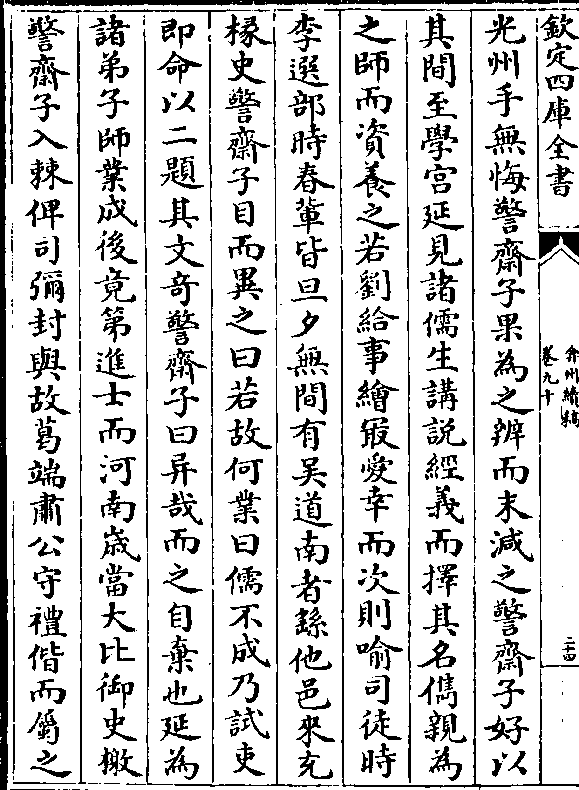 欽定四庫全書
弇州續稿
卷九十
二十四
光州手無悔警齋子果為之辨而末減之警齋子好以
其間至學宮延見諸儒生講説經義而擇其名儁親為
之師而資養之若劉給事繪㝡愛幸而次則喻司徒時
李選部時春輩皆旦夕無間有吴道南者繇他邑來充
椽史警齋子目而異之曰若故何業曰儒不成乃試吏
即命以二題其文奇警齋子曰异哉而之自棄也延為
諸弟子師業成後竟第進士而河南嵗當大比御史檄
警齋子入棘俾司彌封與故葛端肅公守禮偕而籥之